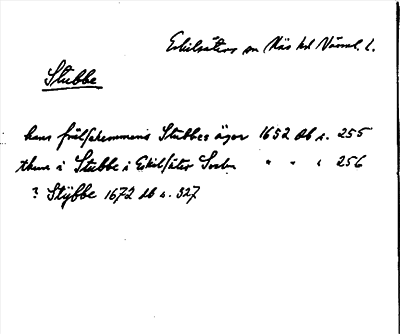 Eskilsäters sn Näs hd Värml. l.
Stubbe
hans frälsehemmens Stubbes ägor 1652 Db s. 255
thenn i Stubbe i Eskilsäter Sockn " " s 256
? Stÿbbe 1672 Db s. 327